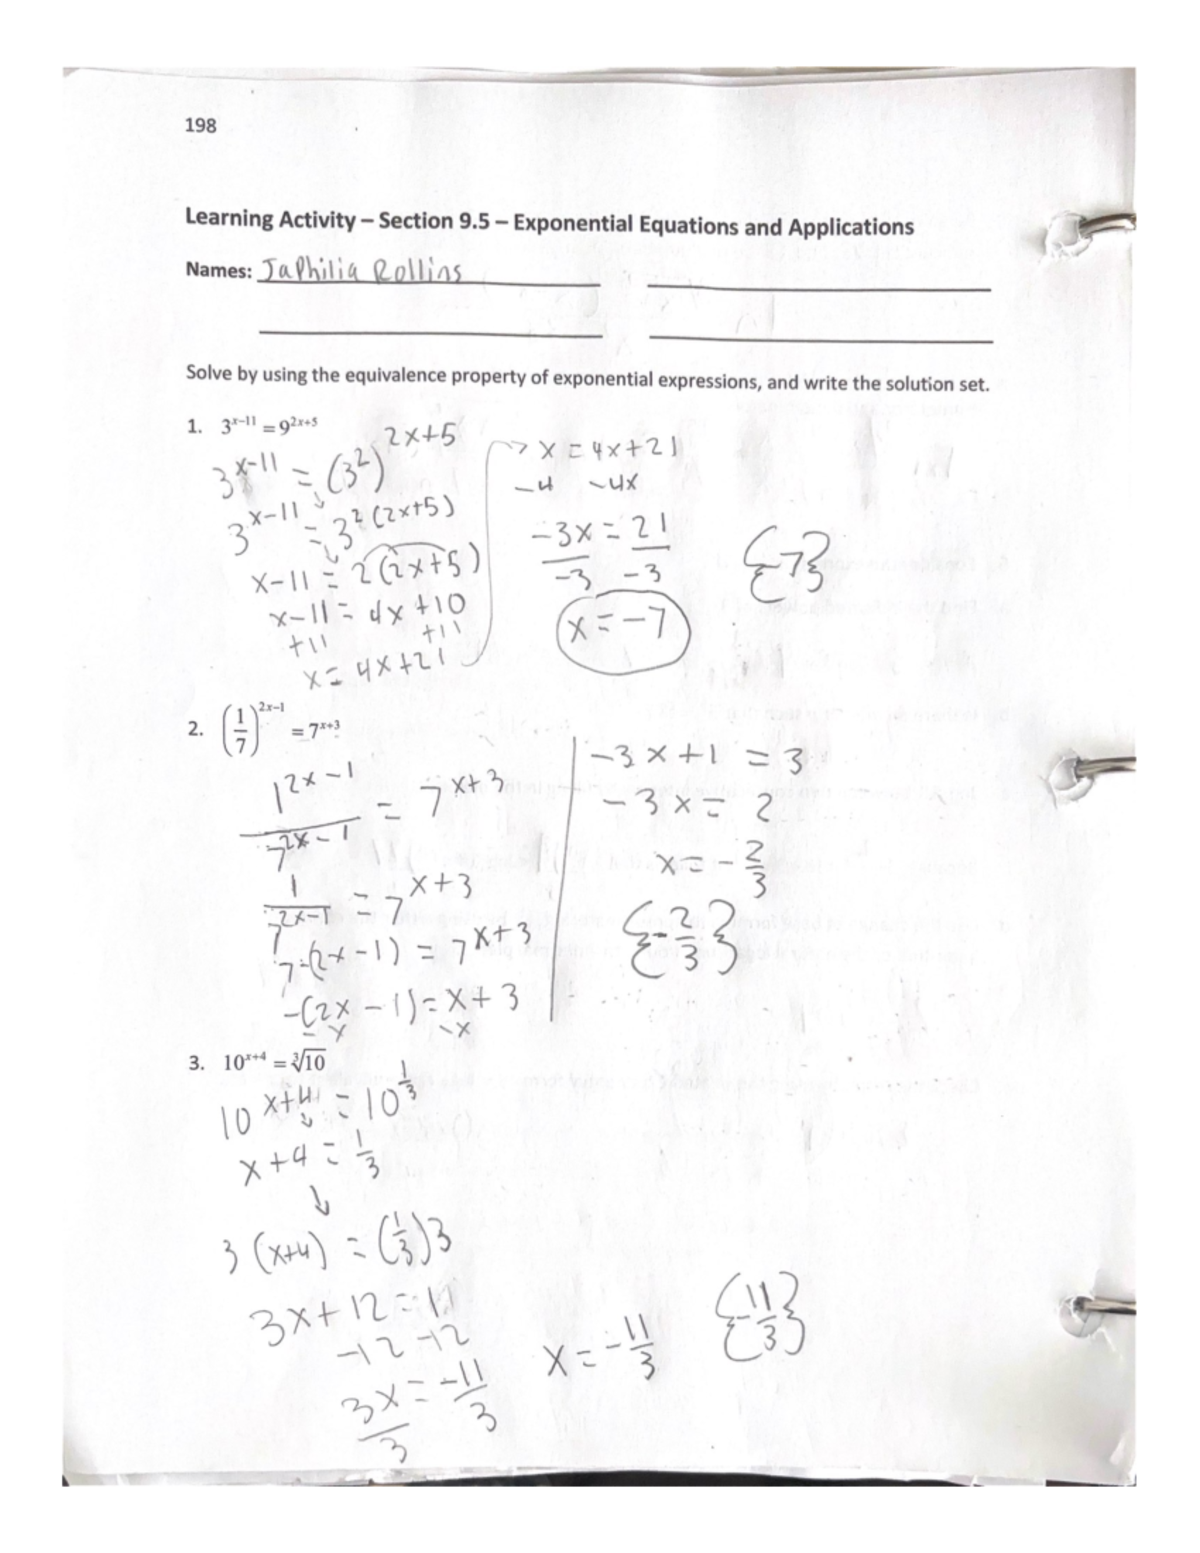 198
Learning Activity – Section 9.5 – Exponential Equations and Applications
Names: JaPhilia Rollins
Solve by using the equivalence property of exponential expressions, and write the solution set.
1. 3^(x−11) = 9^(2x+5)
3^(x-11) = (3^2)^(2x+5)
3^(x-11) = 3^(2(2x+5))
x-11 = 2(2x+5)
x-11 = 4x+10
+11 +11
x = 4x+21
→ x = 4x+21
-4 -4x
-3x = 21
-3 -3
x = -7
{-7}
2. (1/7)^(2x−1) = 7^(x+3)
1^(2x-1)/7^(2x-1) = 7^(x+3)
1/7^(2x-1) = 7^(x+3)
7^-(2x-1) = 7^(x+3)
-(2x-1) = x+3
-x -x
-3x+1 = 3
-3x = 2
x = -2/3
{-2/3}
3. 10^(x+4) = ∛10
10^(x+4) = 10^(1/3)
x+4 = 1/3
↓
3(x+4) = (1/3)3
3x+12 = 1
-12 -12
3x/3 = -11/3
x = -11/3
{-11/3}